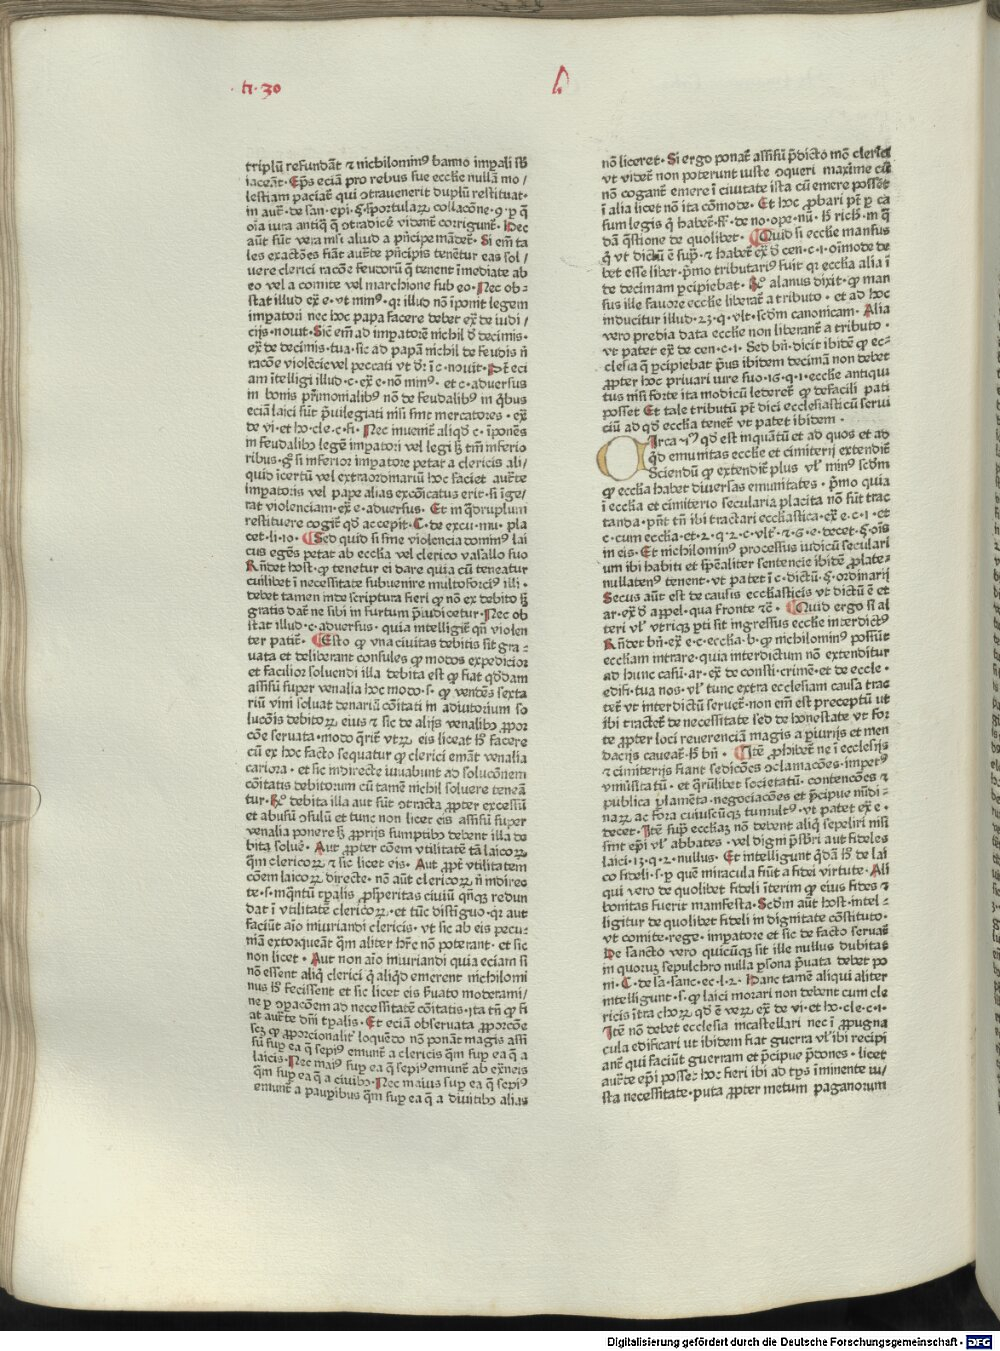 · ti · 30
triplū refundāt ⁊ nichilominꝰ banno imꝑali sb
iaceāt · Ep̄s eciā pro rebus sue eccƚie nullā mo /
lestiam paciat̄ qui ɔtrauenerit duplū restituat ·
in aut̄ · de san · epi · §· sportulaꝝ collacōne · 9 · ꝑ q̄
oīa iura antiq̄ q̄ ɔtradicē vident̄ corrigunt̄ · Hec
aūt sūt vera nisi aliud a pñcipe mādet̄ · Si em̄ ta
les exactōes fiāt auct̄e pñcipis tenētur eas sol /
uere clerici racōe feudorū q̄ tenent īmediate ab
eo vel a comite vel marchione sub eo · Nec ob=
stat illud ex̄ e · vt minꝰ · qꝛ illud nō īponit legem
impatori nec hoc papa facere debet ex̄ de iudi /
cijs · nouit · Sic em̄ ad impatorē nichil d̄ decimis ·
ex̄ de decimis · tua · sic ad papā nichil de feudis n̄
racōe violēcie vel peccati vt d̄r · ī c · nouit · Pt̄ eci
am ītelligi illud · c · ex̄ e · nō minꝰ · et c · aduersus
in bonis pr̄imonialibꝰ nō de feudalibꝰ in q̄bus
eciā laici sūt p̄uilegiati nisi sint mercatores · ex̄
de vi · et ho · cle · c · fi · Nec inuenit̄ aliqd̄ c · īponēs
in feudalibꝫ legē impatori vel legi ꝫ tm̄ inferio
ribus · g̊ si inferior impatore petat a clericis ali /
quid īcertū vel extraordinariū hoc faciet auct̄e
impatoris vel pape alias excōicatus erit · si īge /
rat violenciam · ex̄ e · aduersus · Et in q̄druplum
restituere cogit̄ qd̄ accepit · C · de excu · mu · pla
cet · li · 10 · Sed quid si sine violencia dominꝰ lai
cus egēs petat ab eccƚia vel clerico vasallo suo
Rn̄det host · ꝙ tenetur ei dare quia cū teneatur
cuilibet ī necessitate subuenire multoforciꝰ illi ·
debet tamen inde scriptura fieri ꝙ nō ex debito ꝫ
gratis dat̄ ne sibi in futurum p̄iudicetur · Nec ob
stat illud · c · aduersus · quia intelligit̄ qn̄ violen
ter patit̄ · Esto ꝙ vna ciuitas debitis sit gra=
uata et deliberant consules ꝙ modos expedicior
et facilior soluendi illa debita est ꝙ fiat qd̄dam
assisiū super venalia hoc modo · s · ꝙ vendēs sexta
riū vini soluat denariū cōitati in adiutorium so
lucōis debitoꝝ eius ⁊ sic de alijs venalibꝫ ꝓpor
cōe seruata · modo q̄rit̄ vtꝝ eis liceat hͦ facere
cū ex hoc facto sequatur ꝙ clerici emāt venalia
cariora · et sic indirecte iuuabunt ad solucōnem
cōitatis debitorum cū tamē nichil soluere teneā
tur · debita illa aut sūt ɔtracta ꝓpter excessū
et abusū ɔsulū et tunc non licet eis assisiū super
venalia ponere ꝫ ꝓprijs sumptibꝫ debent illa de
bita soluē · Aut ꝓpter cōem vtilitatē tā laicoꝝ
q̄m clericoꝝ ⁊ sic licet eis · Aut ꝓpt̄ vtilitatem
cōem laicoꝝ directe · nō aūt clericoꝝ n̄ indirec
te · s · inq̄ntū tꝑalis ꝓsꝑitas ciuiū qn̄qꝫ redun
dat ī vtilitatē clericoꝝ · et tūc distīguo · qꝛ aut
faciūt aīo iniuriandi clericis · vt sic ab eis pecu=
niā extorqueāt q̄m aliter hr̄e nō poterant · et sic
non licet · Aut non aīo iniuriandi quia eciam si
nō essent aliq̄ clerici q̄ aliqd̄ emerent nichilomi
nus hͦ fecissent et sic licet eis ẜuato moderami /
ne ꝑ ɔꝑacōem ad necessitatē cōitatis · ita tn̄ ꝙ fi
at auct̄e dn̄i tꝑalis · Et eciā obseruata ꝓporcōe
scꝫ ꝙ ꝓporcionalit̄ loquēdo nō ponāt magis assi
siū suꝑ ea q̄ sepiꝰ emunt̄ a clericis q̄m suꝑ ea q̄ a
laicis · Nec maiꝰ suꝑ ea q̄ sepiꝰ emunt̄ ab ex̄neis
q̄m suꝑ ea q̄ a ciuibꝫ · Nec maius suꝑ ea q̄ sepiꝰ
emunt̄ a pauꝑibus q̄m suꝑ ea q̄ a diuitibꝫ alias
nō liceret · Si ergo ponat̄ assisiū p̄dicto mō clerici
vt videt̄ non poterunt iuste ɔqueri maxime cū
nō cogant̄ emere ī ciuitate ista cū emere possēt
ī alia licet nō ita cōmode · Et hoc ꝓbari pt̄ ꝑ ca
sum legis q̄ habet̄ · ff · de no · ope · nū · hͦ rich · in q̄
dā q̄stione de quolibet · Quid si eccƚie mansus
q̄ vt dictū ē suꝑ · ⁊ habet̄ ex̄ d̄ cen · c · 1 · oīmode de
bet esse liber · p̄mo tributariꝰ fuit qꝛ eccƚia alia ī
de decimam ꝑcipiebat · alanus dixit · ꝙ man
sus ille fauore eccƚie liberat̄ a tributo · et ad hoc
inducitur illud · 23 · q · vlt · scd̄m canonicam · Alia
vero predia data eccƚie non liberant̄ a tributo ·
vt patet ex̄ de cen · c · 1 · Sed bn̄ · dicit ibidē ꝙ ec=
clesia q̄ ꝑcipiebat p̄us ibidem decimā non debet
ꝓpter hoc priuari iure suo · 16 · q · 1 · eccƚie antiqui
tus nisi forte ita modicū lederet̄ ꝙ defacili pati
posset Et tale tributū pt̄ dici ecclesiasticū serui
ciū ad qd̄ eccƚia tenet̄ vt patet ibidem ·
Circa 4ᵐ qd̄ est inquātū et ad quos et ad
q̄d emunitas eccƚie et cimiterij extendit̄
Sciendū ꝙ extendit̄ plus vƚ minꝰ scd̄m
ꝙ eccƚia habet diuersas emunitates · p̄mo quia
ī eccƚia et cimiterio secularia placita nō sūt trac
tanda · pn̄t tn̄ ibi tractari eccƚiastica · ex̄ e · c · 1 · et
c · cum eccƚia · et · 2 · q · 2 · c · vlt̄ · ⁊ · 6 · e · decet · §· oīs
in eis · Et nichilominꝰ processus iudicū seculari
um ibi habiti et spēaliter sentencie ibidē ꝓlate=
nullatenꝰ tenent · vt patet ī c · dictū · §· ordinarij
Secus aūt est de causis eccƚiasticis vt dictū ē et
ar · ex̄ d̄ appel · qua fronte ⁊c̄ · Quid ergo si al
teri vƚ vtriqꝫ ꝑti sit ingressus eccƚie interdictꝰ
Rn̄det bn̄ · ex̄ e · c · eccƚia · b · ꝙ nichilominꝰ possūt
eccƚiam intrare · quia interdictum nō extenditur
ad hunc casū · ar · ex̄ de consti · crimē · et de eccƚe ·
edifi · tua nos · vƚ tunc extra ecclesiam causa trac
tet̄ vt interdictū seruet̄ · non em̄ est preceptū ut
ibi tractet̄ de necessitate sed de honestate vt for
te ꝓpter loci reuerenciā magis a ꝑiurijs et men
dacijs caueat̄ · hͦ bn̄ · Itē ꝓhibet̄ ne ī ecclesijs
⁊ cimiterijs fiant sedicōes ɔclamacōes · impetꝰ
vniūsitatū · et q̄rūlibet societatū · contencōes ⁊
publica ꝑlamēta · negociacōes et p̄cipue nūdi=
naꝝ ac fora cuiuscūqꝫ tumultꝰ · vt patet ex̄ e ·
decet · Itē suꝑ eccƚiaꝫ nō debent aliq̄ sepeliri nisi
sint epī vƚ abbates · vel digni p̄sbr̄i aut fideles
laici · 13 · q · 2 · nullus · Et intelligunt q̄dā hͦ de lai
co fideli · s · ꝑ quē miracula fiūt a fidei virtute · Ali
qui vero de quolibet fideli īterim ꝙ eius fides ⁊
bonitas fuerit manifesta · Scdm̄ aūt host · intel=
ligitur de quolibet fideli in dignitate cōstituto ·
vt comite · rege · impatore et sic de facto seruat̄
De sancto vero quicūqꝫ sit ille nullus dubitat
in quorūꝫ sepulchro nulla ꝑsona p̄uata debet po
ni · C · de sa · sanc · ec · l · 2 · Hanc tamē aliqui aliter
intelligunt · s · ꝙ laici morari non debent cum cle
ricis ītra choꝝ qd̄ ē veꝝ ex̄ de vi · et ho · cle · c · 1 ·
Itē nō debet ecclesia incastellari nec ī ꝓpugna
cula edificari ut ibidem fiat guerra vƚ ibi recipi
ant̄ qui faciūt guerram et p̄cipue p̄dones · licet
auct̄e epī posset hoc fieri ibi ad tp̄s īminente iu /
sta necessitate · puta ꝓpter metum paganorum
Digitalisierung gefördert durch die Deutsche Forschungsgemeinschaft - DFG